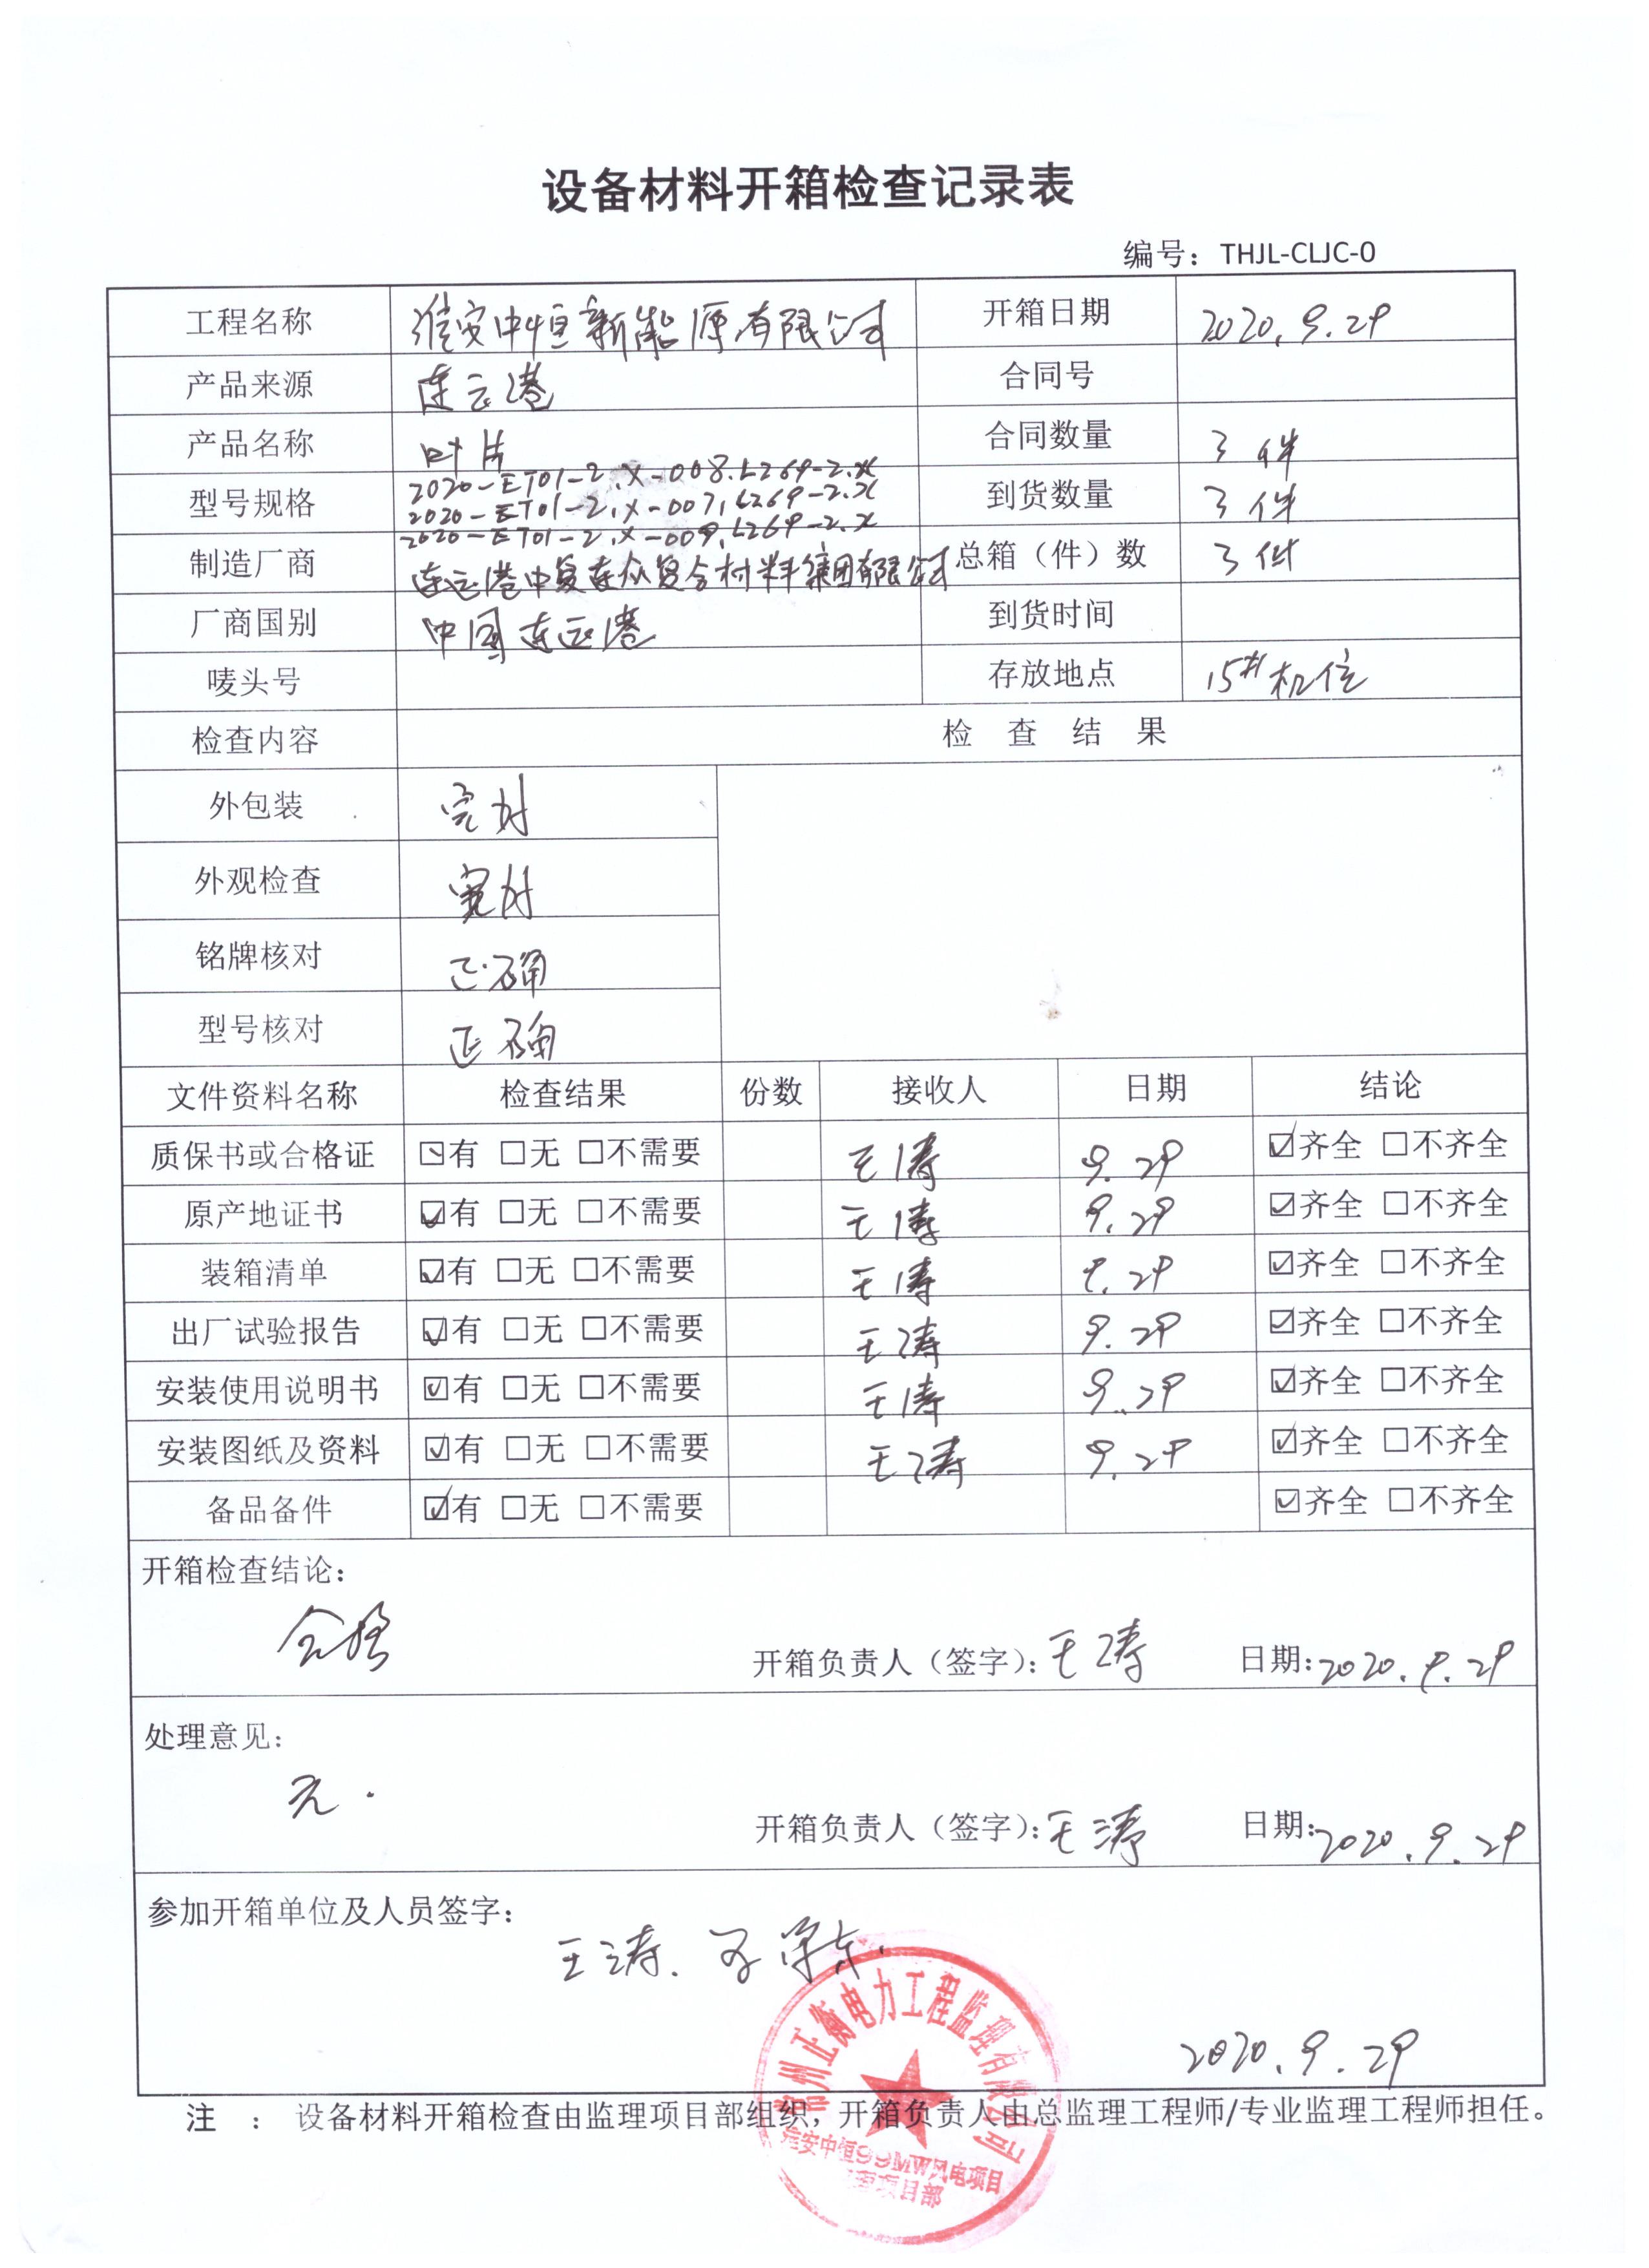 设备材料开箱检查记录表
编号：THJL-CLJC-0
工程名称 淮安中恒新能源有限公司 开箱日期 2020.9.29
产品来源 连云港 合同号
产品名称 叶片 合同数量 3件
型号规格 2020-ET01-2.X-008.L269-2.X 到货数量 3件
2020-ET01-2.X-007.L269-2.X
2020-ET01-2.X-009.L269-2.X
制造厂商 连云港中复连众复合材料集团有限公司 总箱（件）数 3件
厂商国别 中国连云港 到货时间
唛头号 存放地点 15#机位
检查内容 检 查 结 果
外包装 完好
外观检查 完好
铭牌核对 正确
型号核对 正确
文件资料名称 检查结果 份数 接收人 日期 结论
质保书或合格证 ☑有 □无 □不需要 王涛 9.29 ☑齐全 □不齐全
原产地证书 ☑有 □无 □不需要 王涛 9.29 ☑齐全 □不齐全
装箱清单 ☑有 □无 □不需要 王涛 9.29 ☑齐全 □不齐全
出厂试验报告 ☑有 □无 □不需要 王涛 9.29 ☑齐全 □不齐全
安装使用说明书 ☑有 □无 □不需要 王涛 9.29 ☑齐全 □不齐全
安装图纸及资料 ☑有 □无 □不需要 王涛 9.29 ☑齐全 □不齐全
备品备件 ☑有 □无 □不需要 ☑齐全 □不齐全
开箱检查结论：
合格
开箱负责人（签字）：王涛 日期：2020.9.29
处理意见：
无.
开箱负责人（签字）：王涛 日期：2020.9.29
参加开箱单位及人员签字：
王涛.
常州正衡电力工程监理有限公司
淮安中恒99MW风电项目
监理项目部
2020.9.29
注 ： 设备材料开箱检查由监理项目部组织，开箱负责人由总监理工程师/专业监理工程师担任。